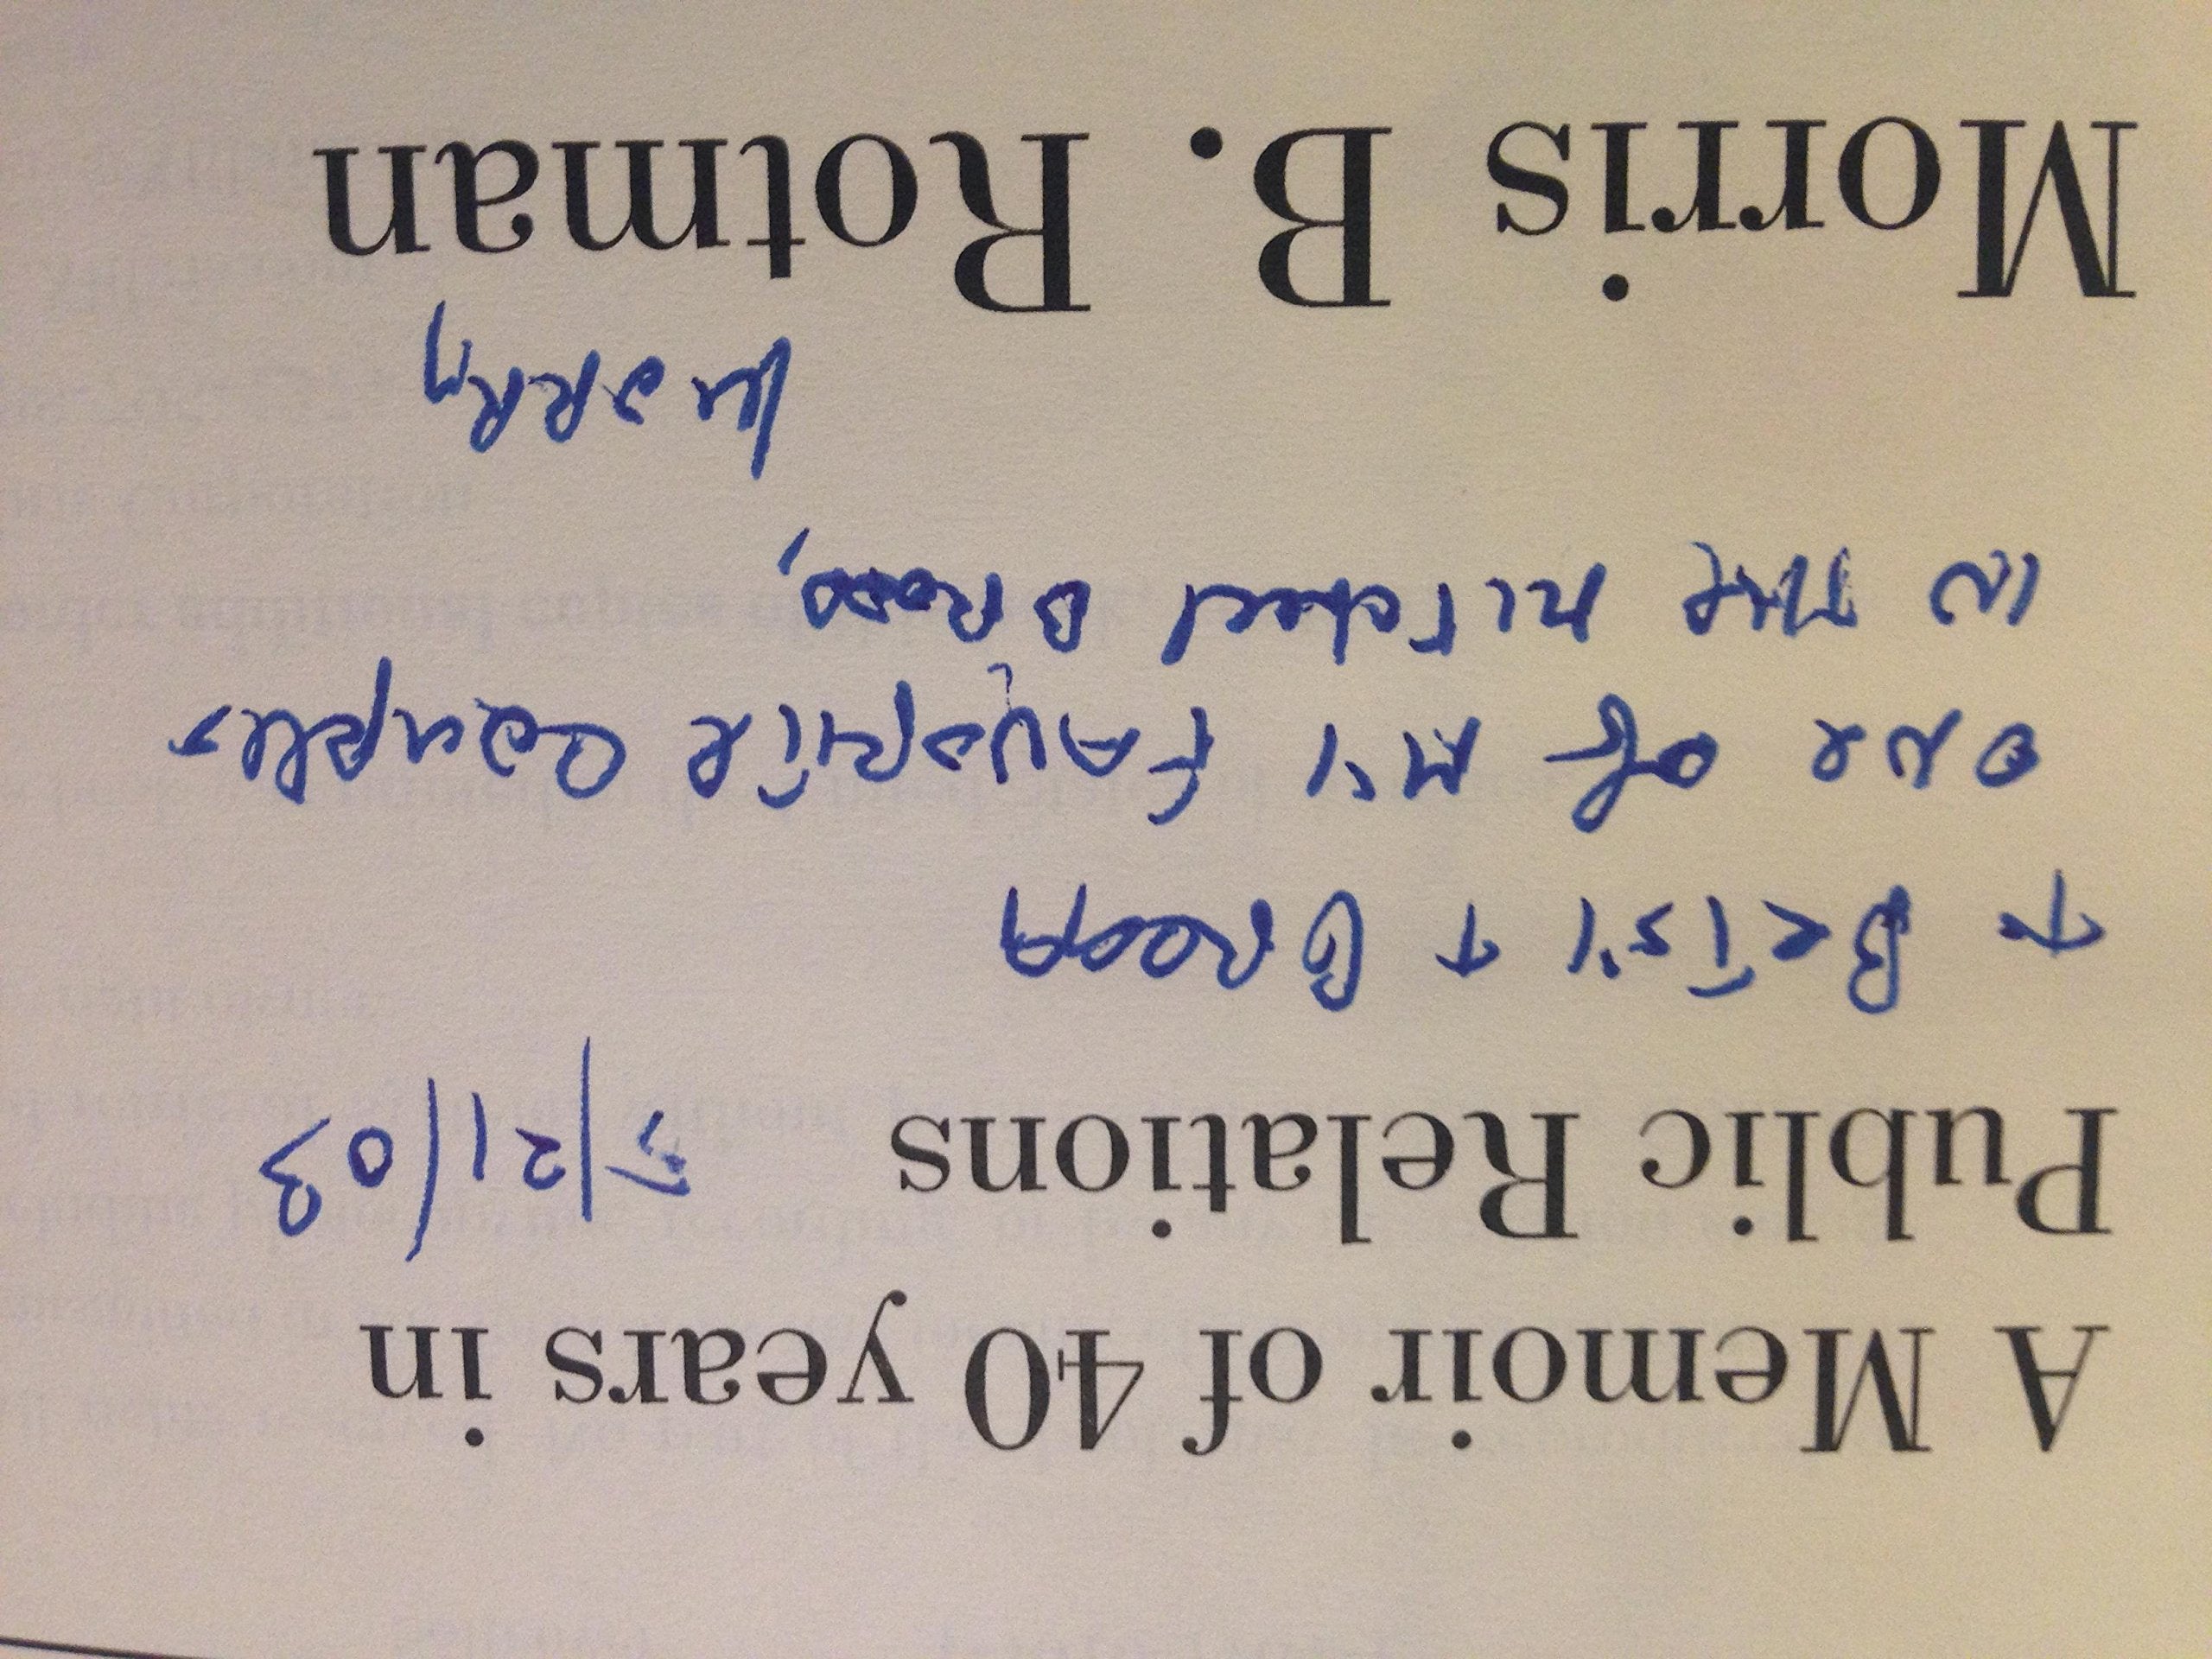 A Memoir of 40 years in
Public Relations 5/21/03
Betsy +
one of my favorite couples
in the
Morry
Morris B. Rotman